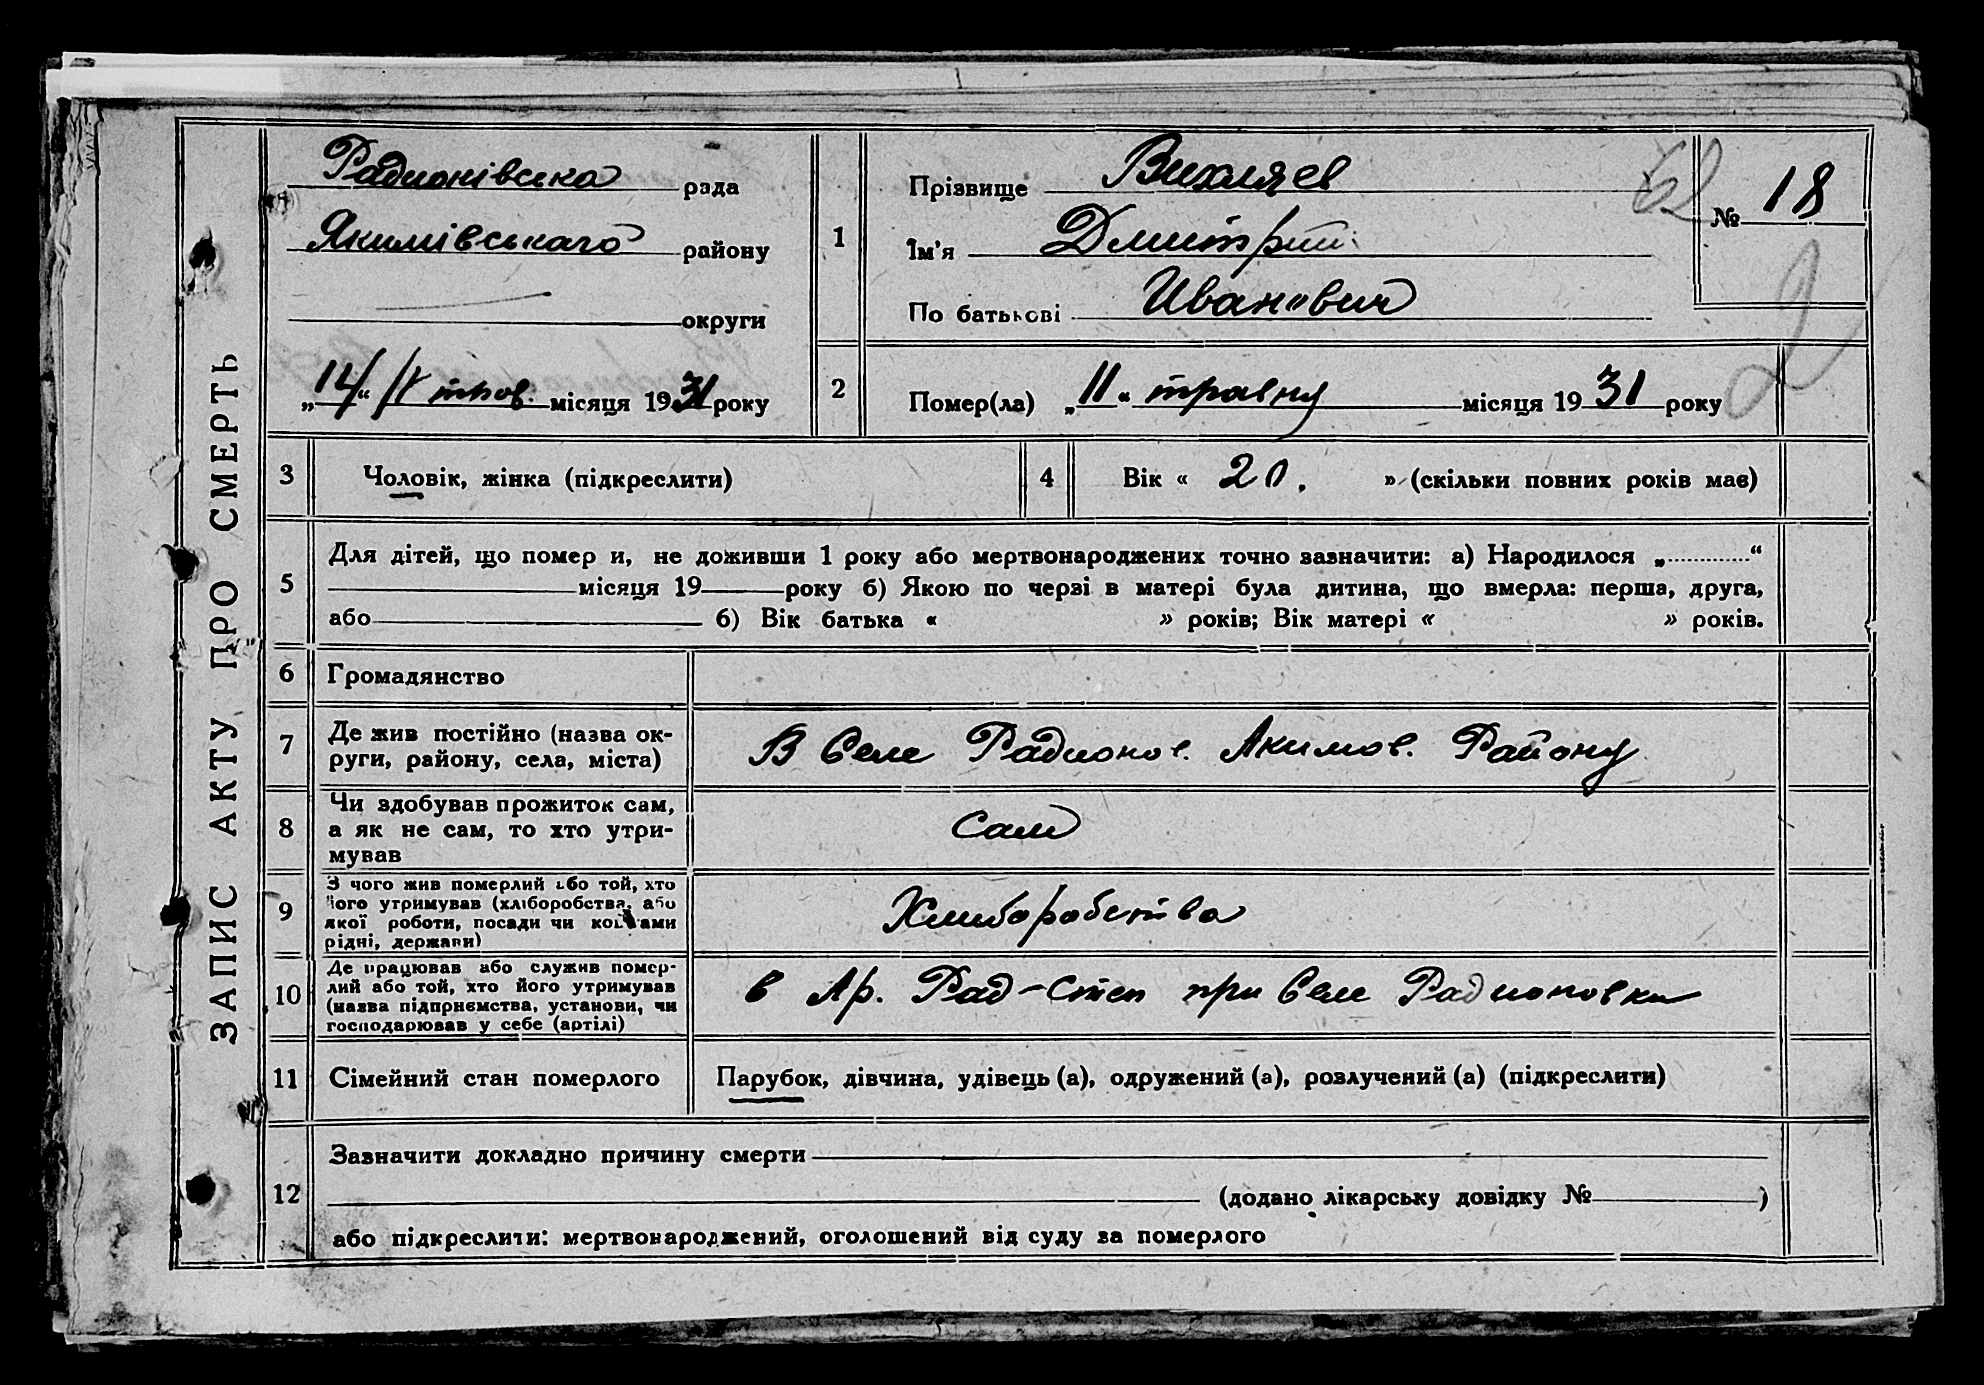 ЗАПИС АКТУ ПРО СМЕРТЬ
Радионівська рада
Якимівського району
округи
„14“ трав. місяця 1931 року
1
Прізвище Вихляев
Ім'я Дмитрий
По батькові Иванович
62
№ 18
2
2
Помер(ла) „11“ травну місяця 1931 року
3
Чоловік, жінка (підкреслити)
4
Вік « 20. » (скільки повних років має)
5
Для дітей, що помер и, не доживши 1 року або мертвонароджених точно зазначити: а) Народилося „ “
місяця 19 року б) Якою по черзі в матері була дитина, що вмерла: перша, друга,
або б) Вік батька « » років; Вік матері « » років.
6
Громадянство
7
Де жив постійно (назва ок-
руги, району, села, міста)
В Селе Радионов. Акимов. Району
8
Чи здобував прожиток сам,
а як не сам, то хто утри-
мував
Сам
9
З чого жив померлий або той, хто
його утримував (хліборобства, або
якої роботи, посади чи коштами
рідні, держави)
Хлиборобства
10
Де працював або служив помер-
лий або той, хто його утримував
(назва підприємства, установи, чи
господарював у себе (артілі)
в Ар. Рад-Степ при Селе Радионовки
11
Сімейний стан померлого
Парубок, дівчина, удівець (а), одружений (а), розлучений (а) (підкреслити)
12
Зазначити докладно причину смерти
(додано лікарську довідку № )
або підкреслити: мертвонароджений, оголошений від суду за померлого